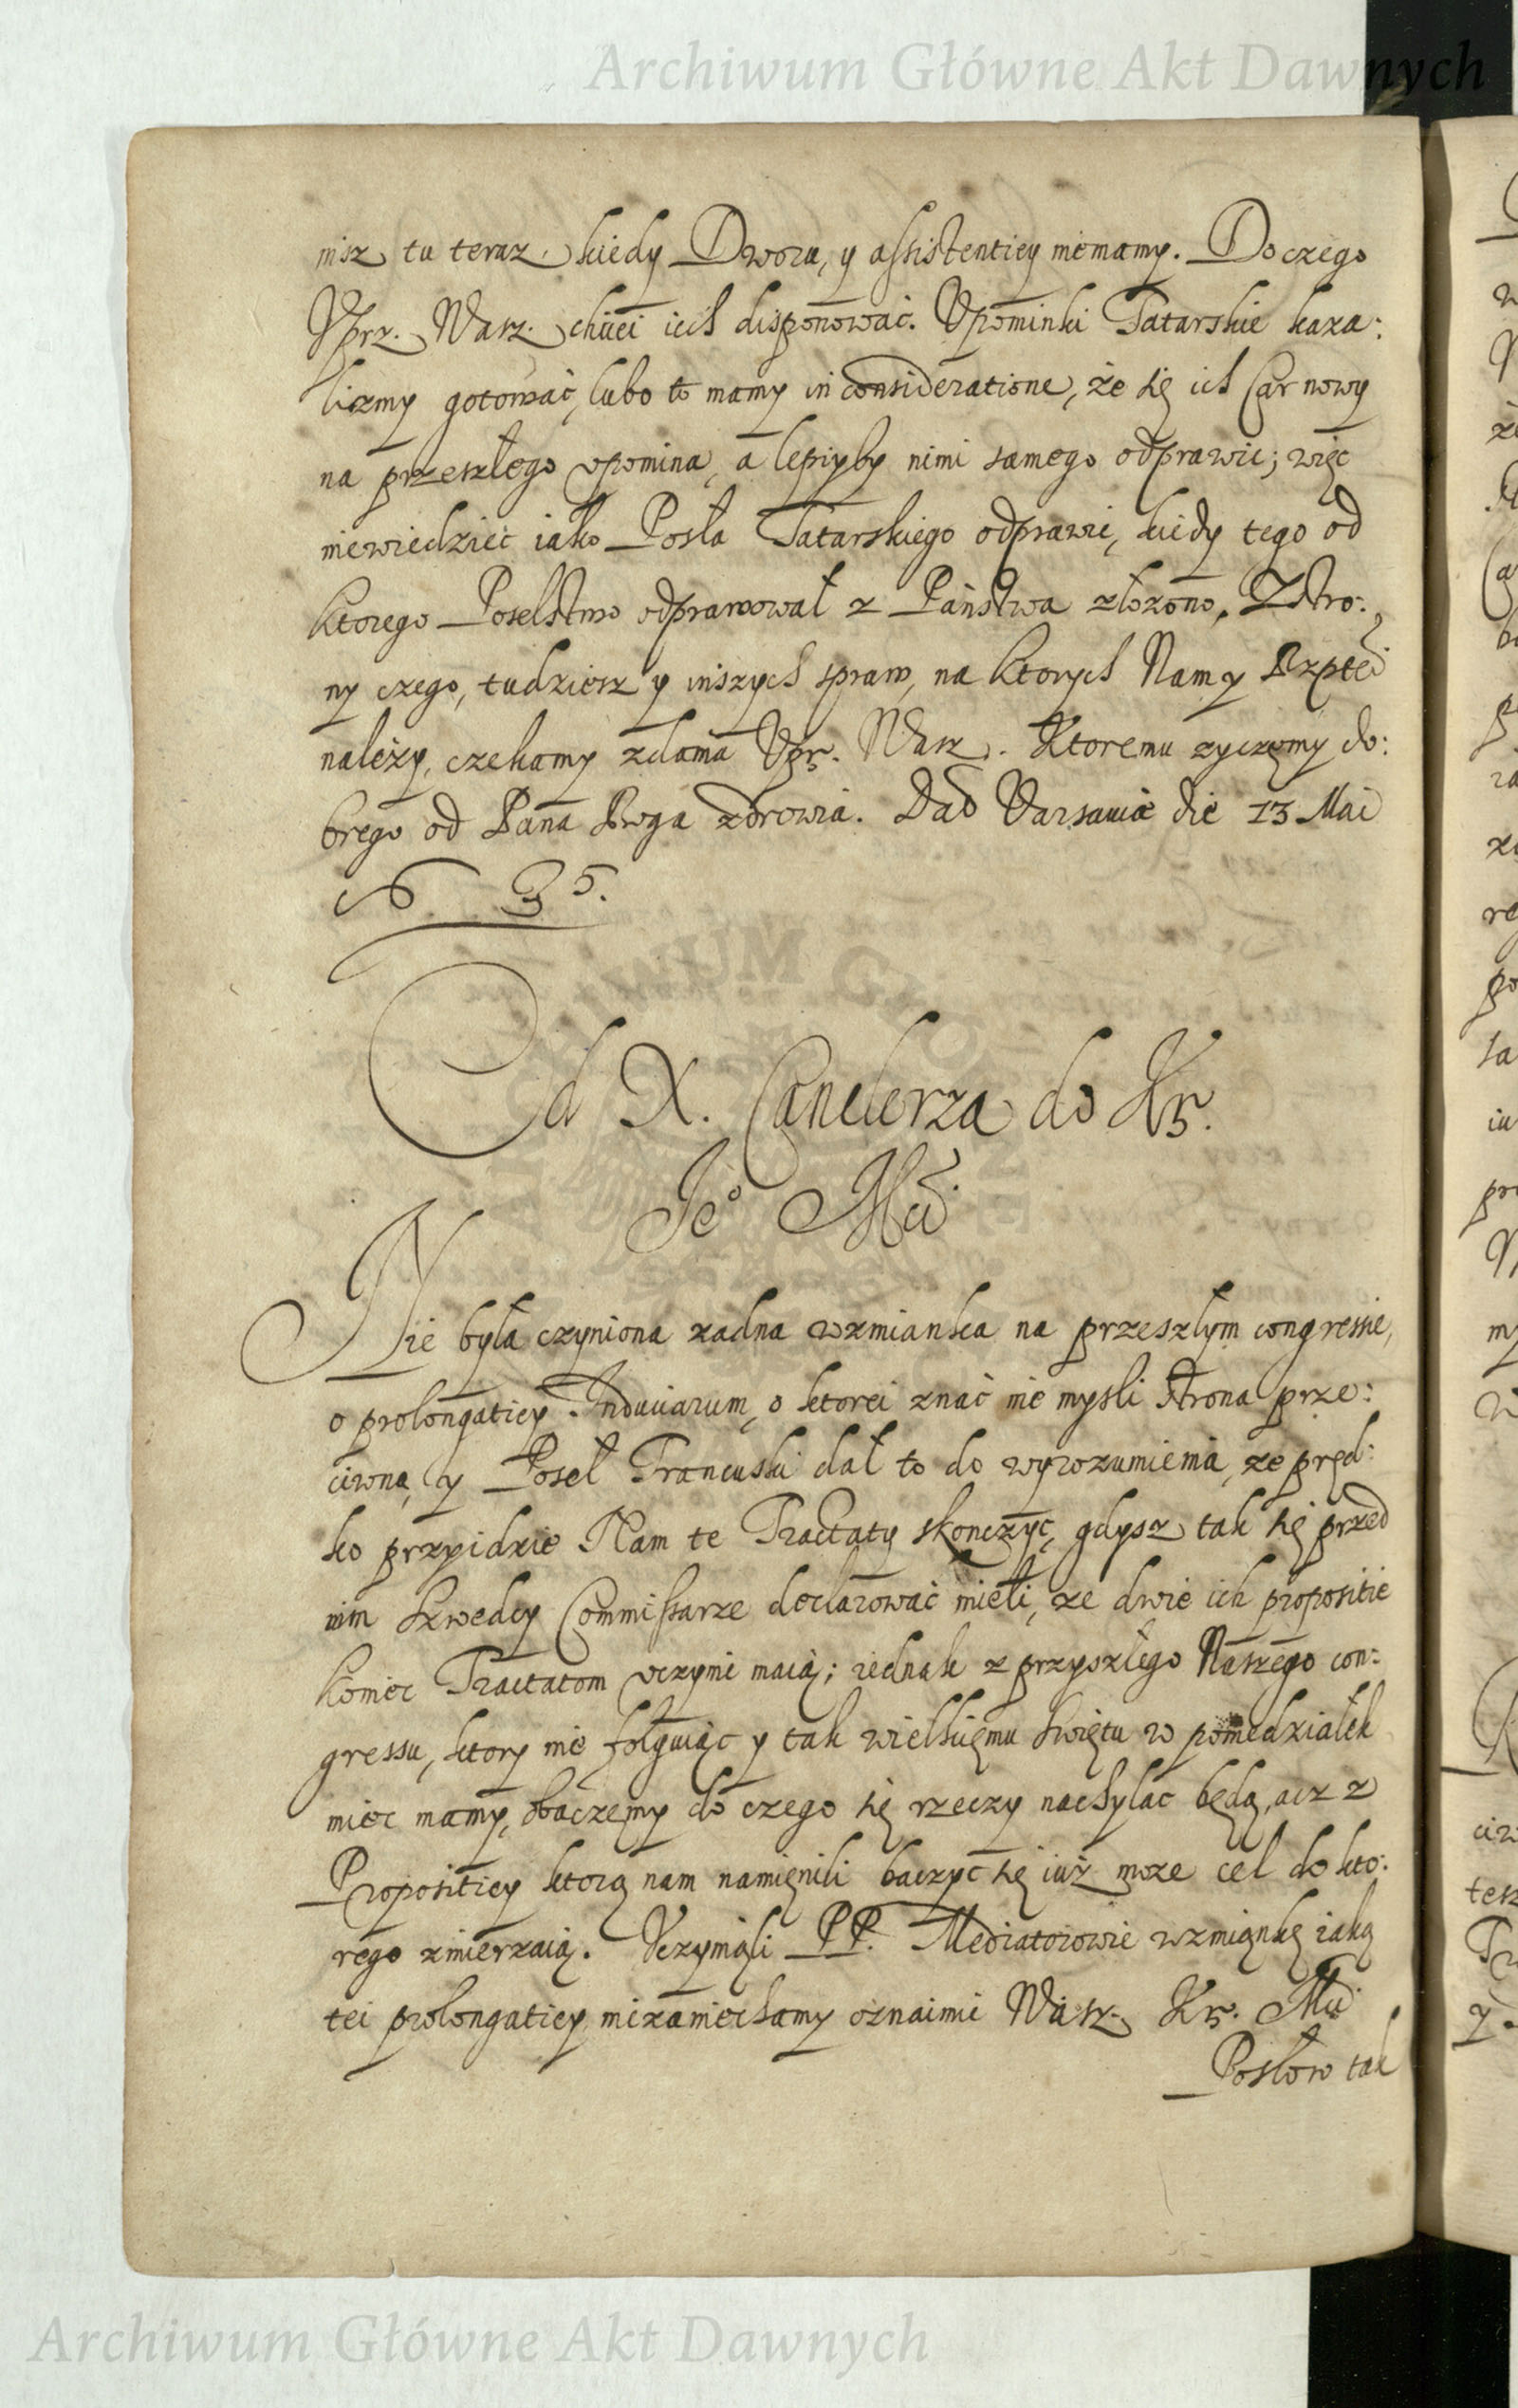 Archiwum Główne Akt Dawnych
nisz tu teraz kiedy Dworu, y assistentiey niemamy. Do czego
Vprz. Wasz. chciei ich disponować. Vpominki Tatarskie kaza:
lismy gotować, lubo to mamy in consideratione, że się ich Car nowy
na przeszłego vpomina, a lepiyby nimi samego odprawic; więc
niewiedziec iako Posła Tatarskiego odprawic, kiedy tego od
ktorego Poselstwo odprawował z Państwa złozono. Zstro:
ny czego, tudziesz y inszych spraw, na ktorych Nam y Rzptei
należy, czekamy zdania Vpr. Wasz. Ktoremu zyczemy do:
brego od Pana Boga zdrowia. Dat Varsauiæ die 13 Maii
35.
Od X. Canclerza do Kr.
Jeº Mci
Nie była czyniona zadna wzmianka na przeszłym congressie,
o prolongatiey Induciarum, o ktorei znać nie mysli strona prze:
ciwna, y Poseł Francuski dał to do wyrozumienia, ze pręd:
ko przyidzie Nam te Tractaty skonczyć, gdysz tak się przed
nim Szwedcy Commissarze declarowac mieli, ze dwie ich propositie
koniec Tractatom vczynic maią; iednak z przyszłego Naszego con:
gressu, ktory nie folguiąc y tak wielkiemu swiętu w poniedziałek
miec mamy, obaczemy do czego się rzeczy nachylac będą, acz z
Propositiey ktorą nam namienili baczyc się iuż moze cel do kto:
rego zmierzaią. Vczyniąli PP. Mediatorowie wzmiankę iaką
tei prolongatiey niezaniechamy oznaimic Wasz. Kr. Mci
Posłow tak
Archiwum Główne Akt Dawnych